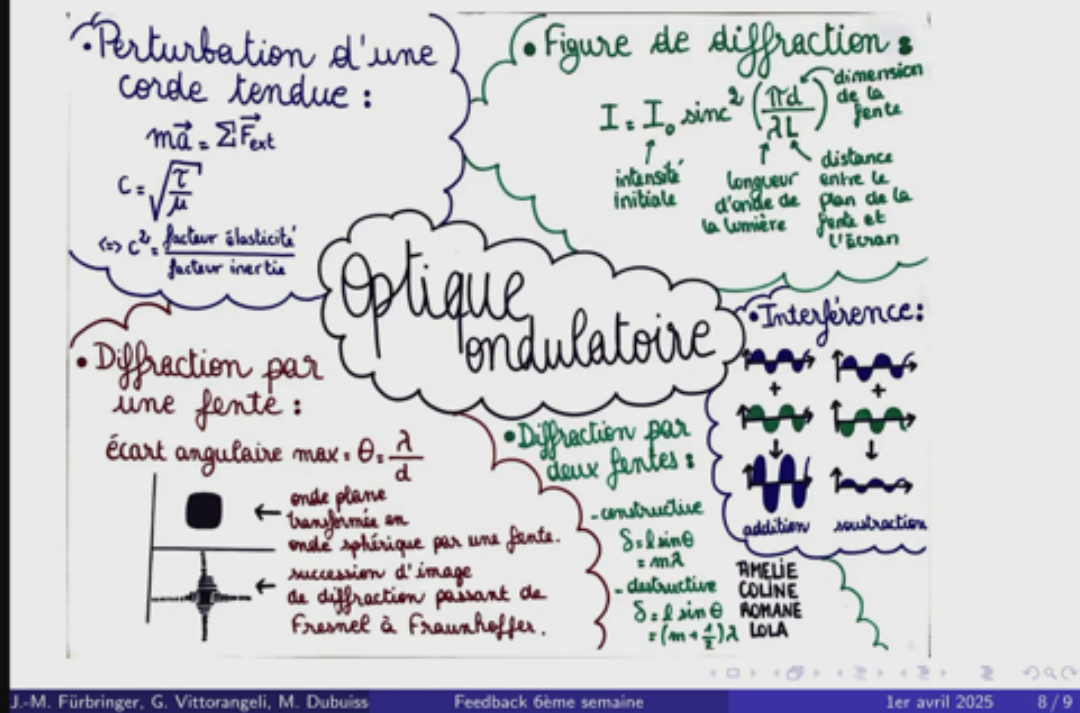 • Perturbation d'une
corde tendue :
ma⃗ = ΣF⃗ext
C = √(τ/μ)
<=> c² = facteur élasticité / facteur inertie
• Figure de diffraction :
I = I₀ sinc² (πd / λL)
dimension
de la
fente
intensité
initiale
longueur
d'onde de
la lumière
distance
entre le
plan de la
fente et
l'écran
Optique
ondulatoire
• Interférence :
+
+
addition
soustraction
• Diffraction par
une fente :
écart angulaire max = θ = λ/d
← onde plane
transformée en
onde sphérique par une fente.
← succession d'image
de diffraction passant de
Fresnel à Fraunhoffer.
• Diffraction par
deux fentes :
- constructive
δ = l sinθ
= mλ
- destructive
δ = l sin θ
= (m + 1/2)λ
AMELIE
COLINE
ROMANE
LOLA
J.-M. Fürbringer, G. Vittorangeli, M. Dubuiss
Feedback 6ème semaine
1er avril 2025
8 / 9